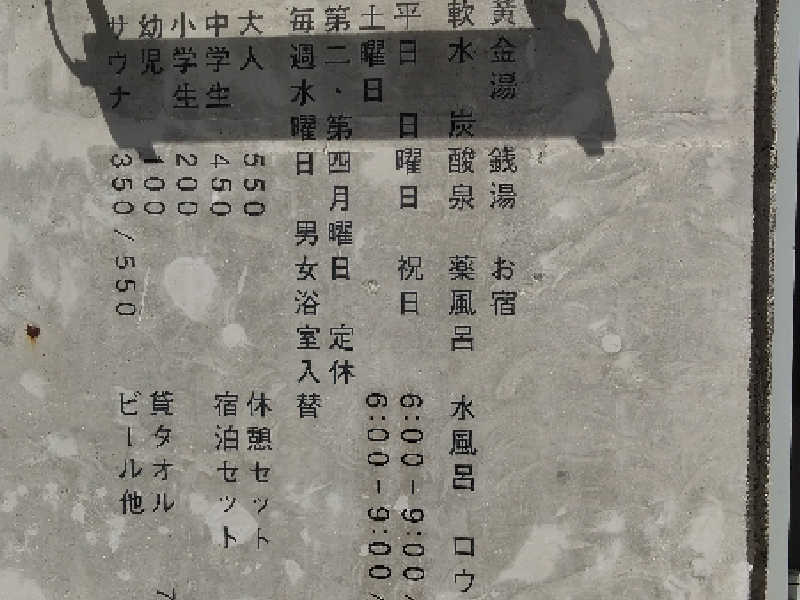 黄金湯 銭湯 お宿
軟水 炭酸泉 薬風呂 水風呂 ロウ
平日 日曜日 祝日 6:00-9:00/
土曜日 6:00-9:00/
第二・第四月曜日 定休
毎週水曜日 男女浴室入替
大人 550 休憩セット
中学生 450 宿泊セット
小学生 200
幼児 100 貸タオル
サウナ 350/550 ビール他